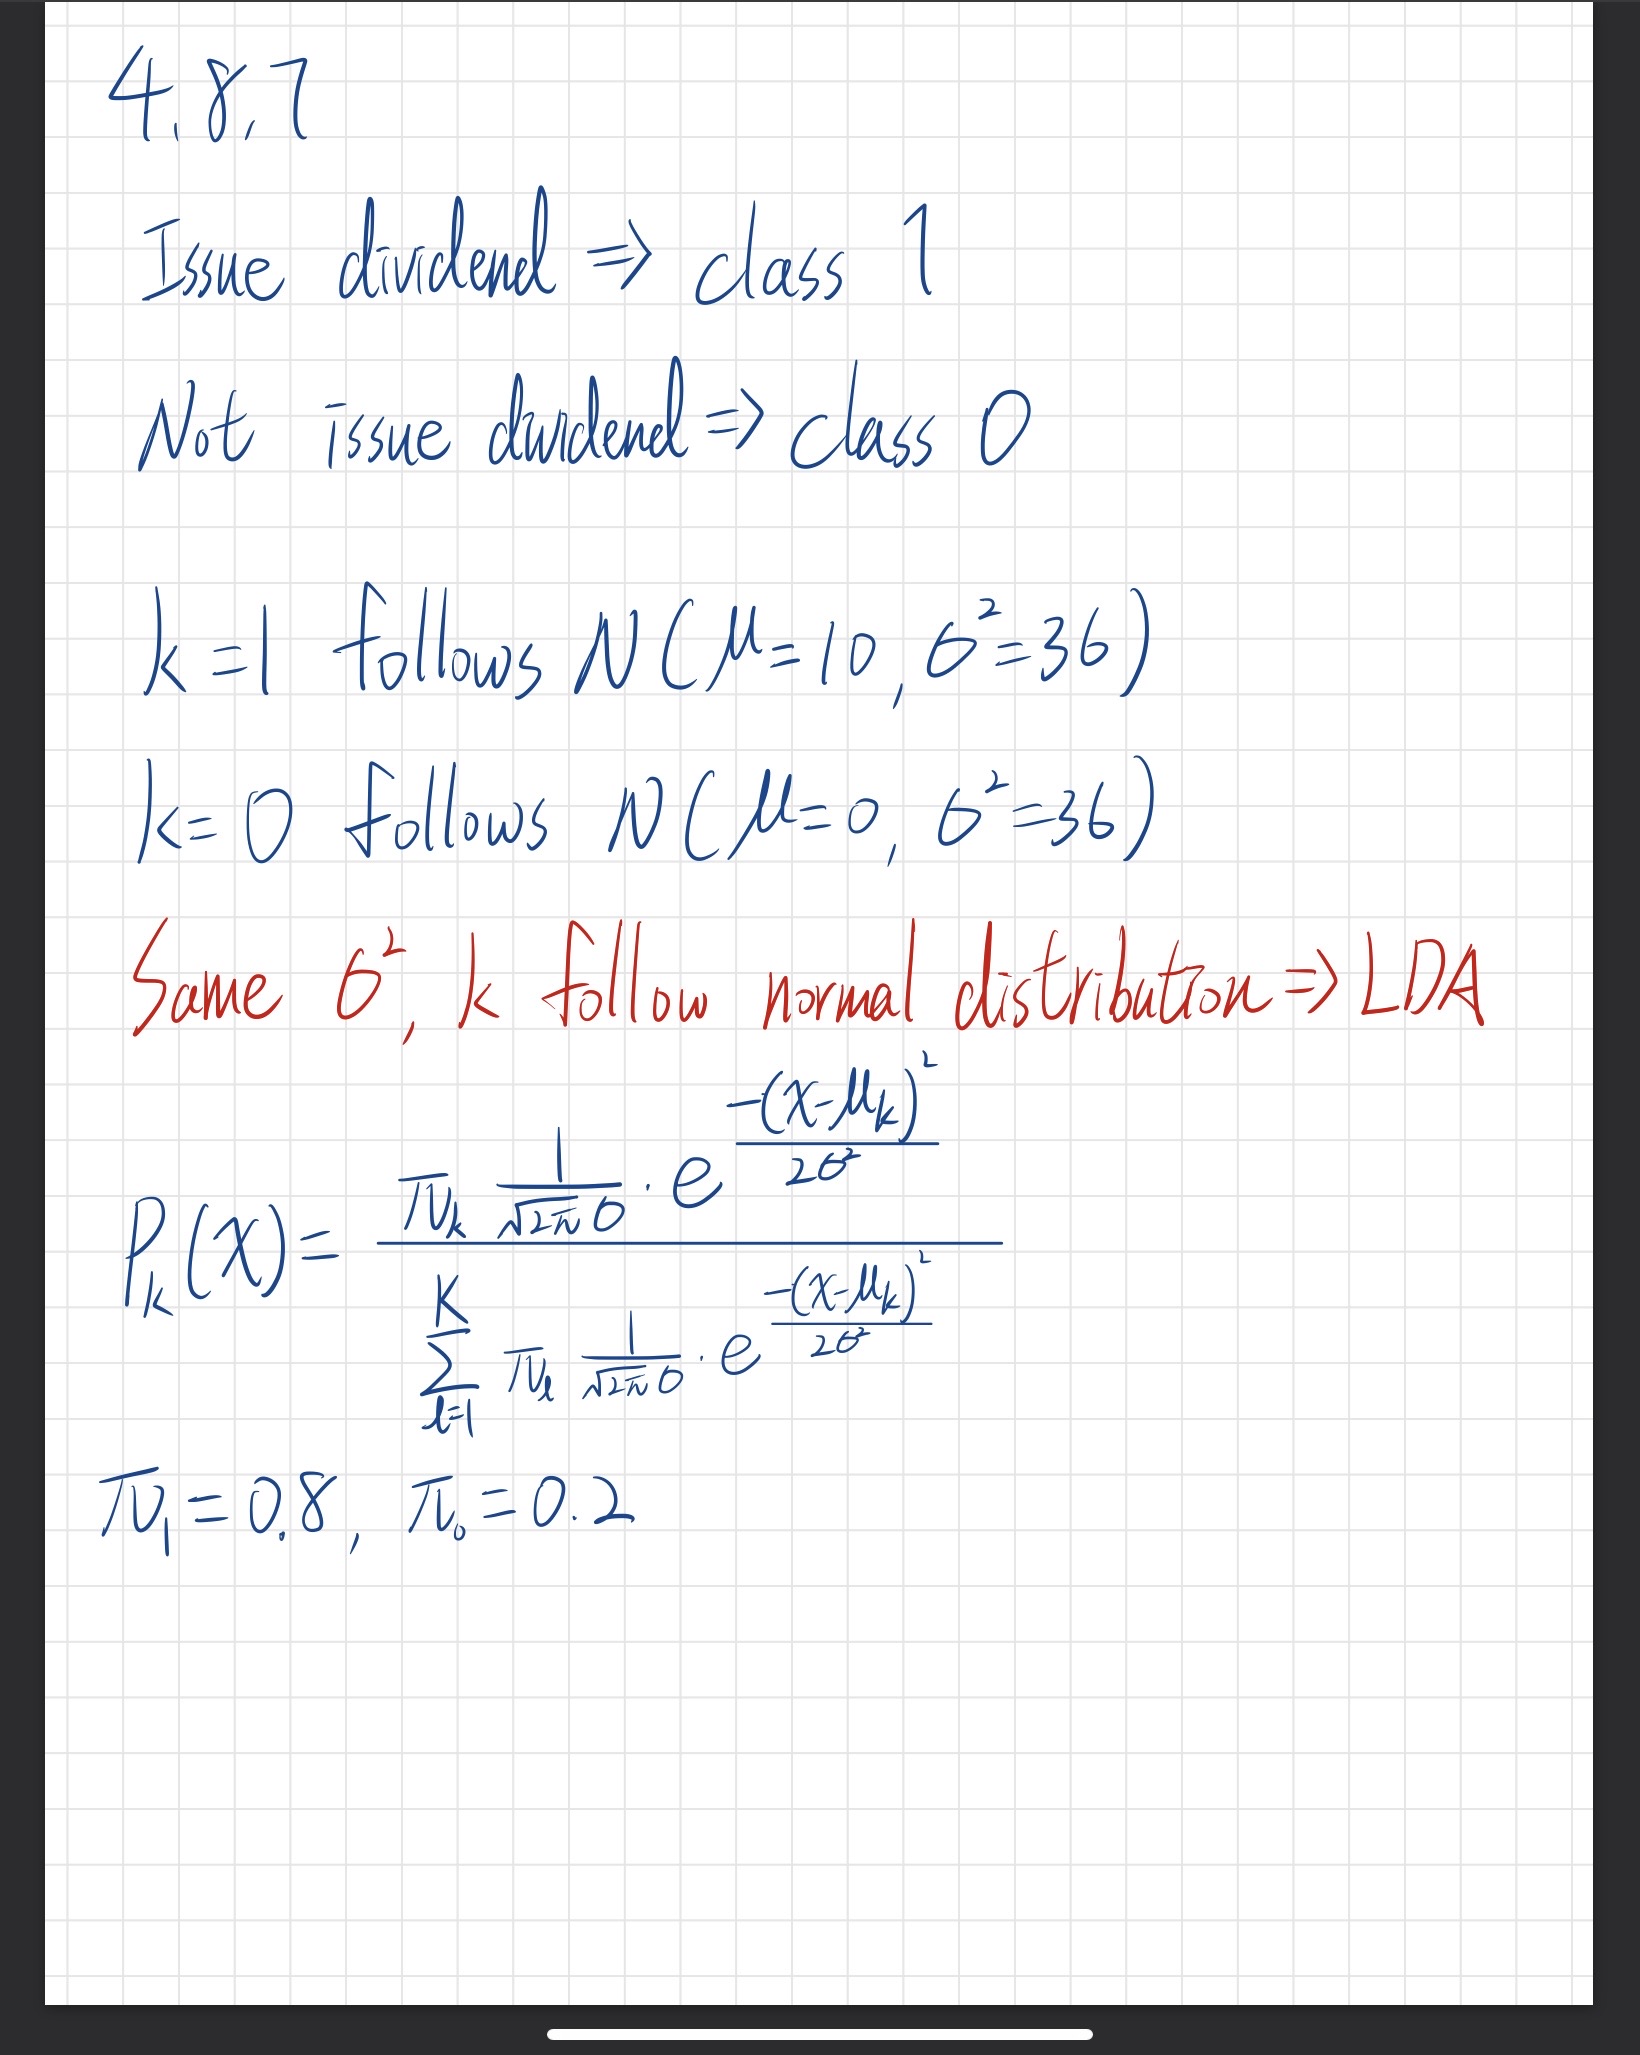 4.8.7
Issue dividend ⇒ class 1
Not issue dividend ⇒ class 0
k=1 follows N(μ=10, σ²=36)
k=0 follows N(μ=0, σ²=36)
Same σ², k follow normal distribution ⇒ LDA
P_k(x) = \frac{π_k \frac{1}{\sqrt{2π}σ} · e^{\frac{-(x-μ_k)^2}{2σ^2}}}{\sum_{l=1}^{K} π_l \frac{1}{\sqrt{2π}σ} · e^{\frac{-(x-μ_k)^2}{2σ^2}}}
π₁=0.8, π₀=0.2